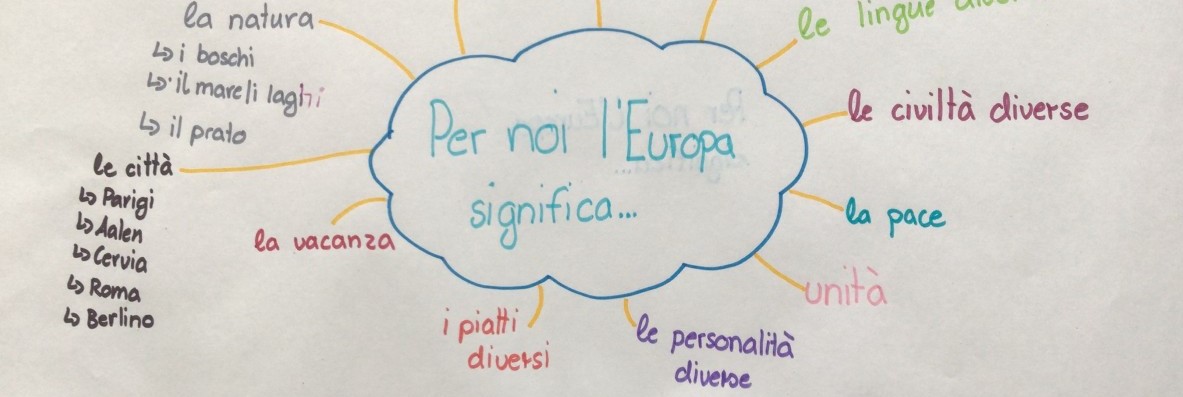 la natura
↳ i boschi
↳ il mare/i laghi
↳ il prato
le città
↳ Parigi
↳ Aalen
↳ Cervia
↳ Roma
↳ Berlino
la vacanza
Per noi l'Europa
significa...
le lingue
le civiltà diverse
la pace
unità
i piatti
diversi
le personalità
diverse